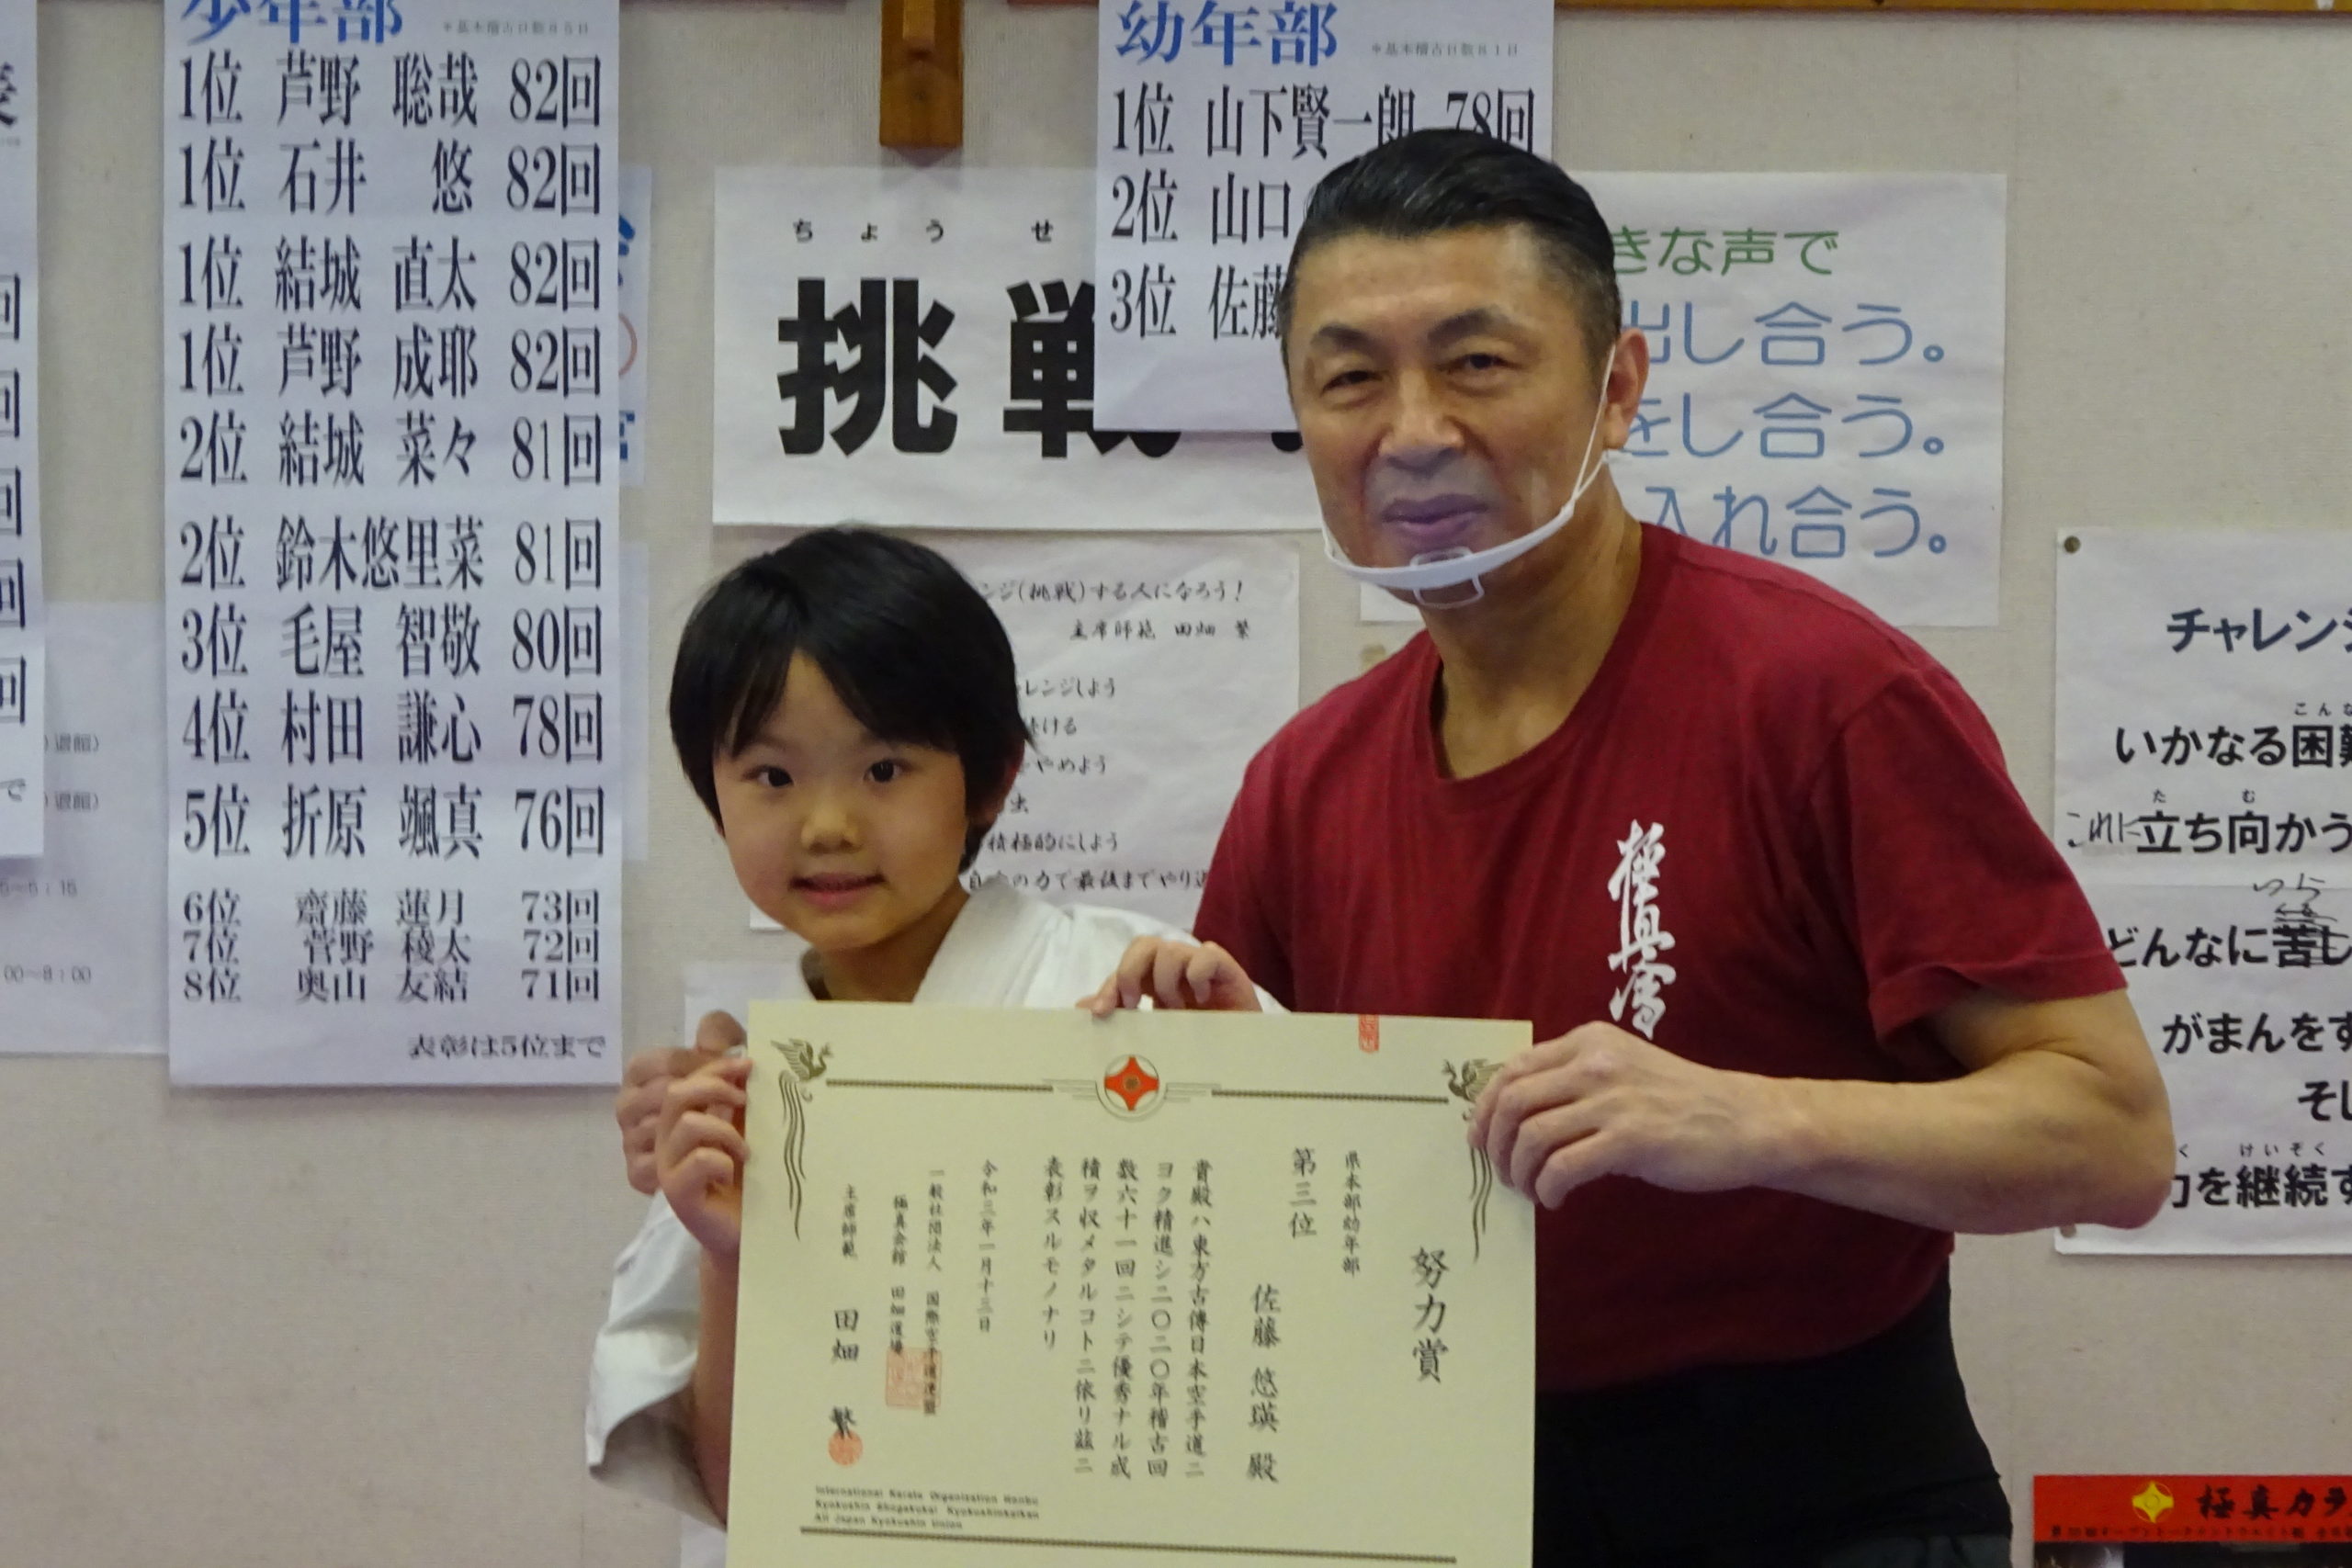 少年部
*基本稽古日数85日
1位 芦野 聡哉 82回
1位 石井 悠 82回
1位 結城 直太 82回
1位 芦野 成耶 82回
2位 結城 菜々 81回
2位 鈴木悠里菜 81回
3位 毛屋 智敬 80回
4位 村田 謙心 78回
5位 折原 颯真 76回
6位 齋藤 蓮月 73回
7位 菅野 稜太 72回
8位 奥山 友結 71回
表彰は5位まで
幼年部
*基本稽古日数81日
1位 山下賢一朗 78回
2位 山口
3位 佐藤
ちょうせ
挑戦
きな声で
出し合う。
をし合う。
入れ合う。
ンジ(挑戦)する人になろう!
主席師範 田畑 繁
レンジしよう
ける
をやめよう
積極的にしよう
の力で最後までやり
チャレンジ
こんな
いかなる困難
たむ
これに立ち向かう
つら
どんなに苦し
がまんをす
そし
けいぞく
力を継続す
極真
努力賞
県本部幼年部
第三位
佐藤 悠瑛 殿
貴殿ハ東方古傳日本空手道ニ
ヨク精進シ二〇二〇年稽古回
数六十一回ニシテ優秀ナル成
積ヲ収メタルコトニ依リ茲ニ
表彰スルモノナリ
令和三年一月十三日
一般社団法人 国際空手道連盟
極真会館 田畑道場
主席師範 田畑 繁
International Karate Organization Honbu
Kyokushin Shogakukai Kyokushinkaikan
All Japan Kyokushin Union
極真カラ